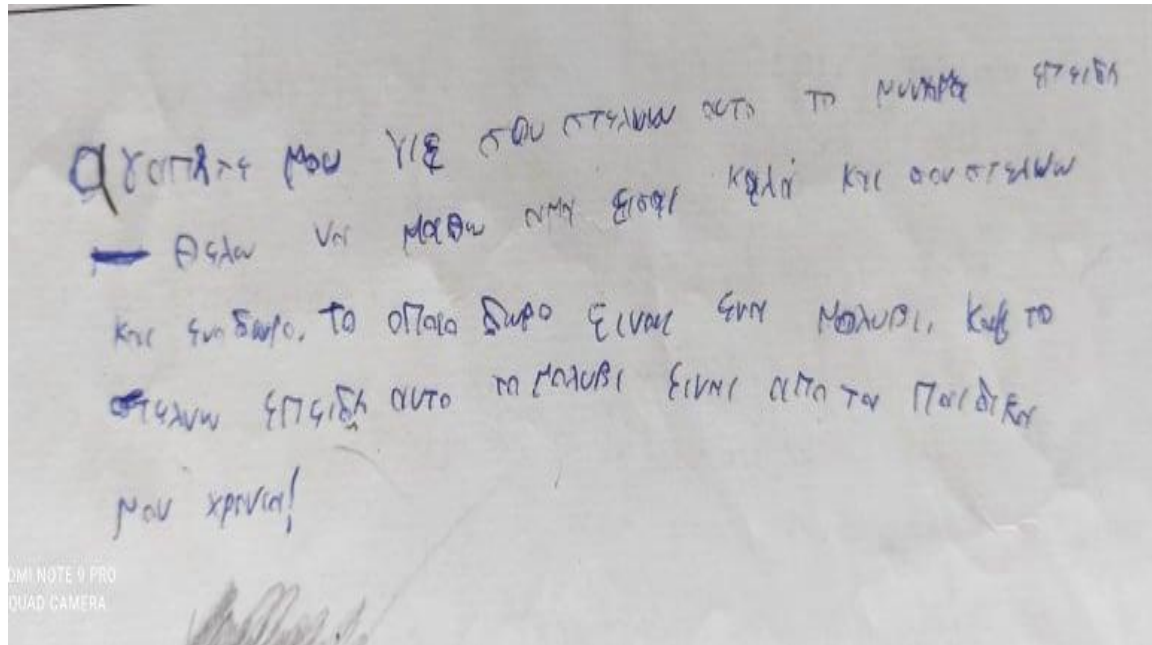 αγαπητε μου γιε σου στελνω αυτο το μυνημα επειδη
θελω να μαθω αμα εισαι καλά και σου στελνω
και ενα δωρο. το οποιο δωρο ειναι ενα μολυβι. και το
στελνω επειδη αυτο το μολυβι ειναι απο τα παιδικα
μου χρονια!
DMI NOTE 9 PRO
QUAD CAMERA